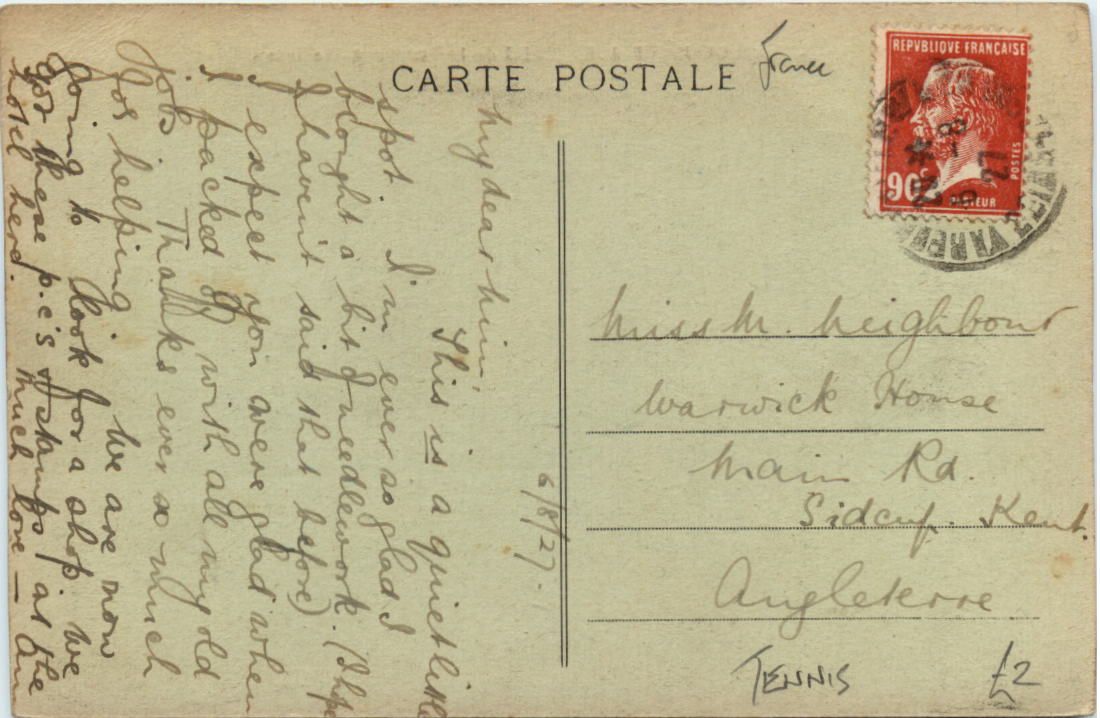 CARTE POSTALE
France
REPVBLIQVE FRANÇAISE
POSTES
90c
PASTEUR
6/8/27.
My dear Mim,
This is a quiet little
spot I'm ever so glad I
brought a bit of needlework. (I hope
I haven't said that before)
I expect you were glad when
I packed off with all my old
jobs Thanks ever so much
for helping. We are now
going to look for a shop. We
got these p.c's & stamps at the
hotel here. Much love —
Miss M. Neighbour
Warwick House
Main Rd.
Sidcup. Kent.
Angleterre
TENNIS
£2